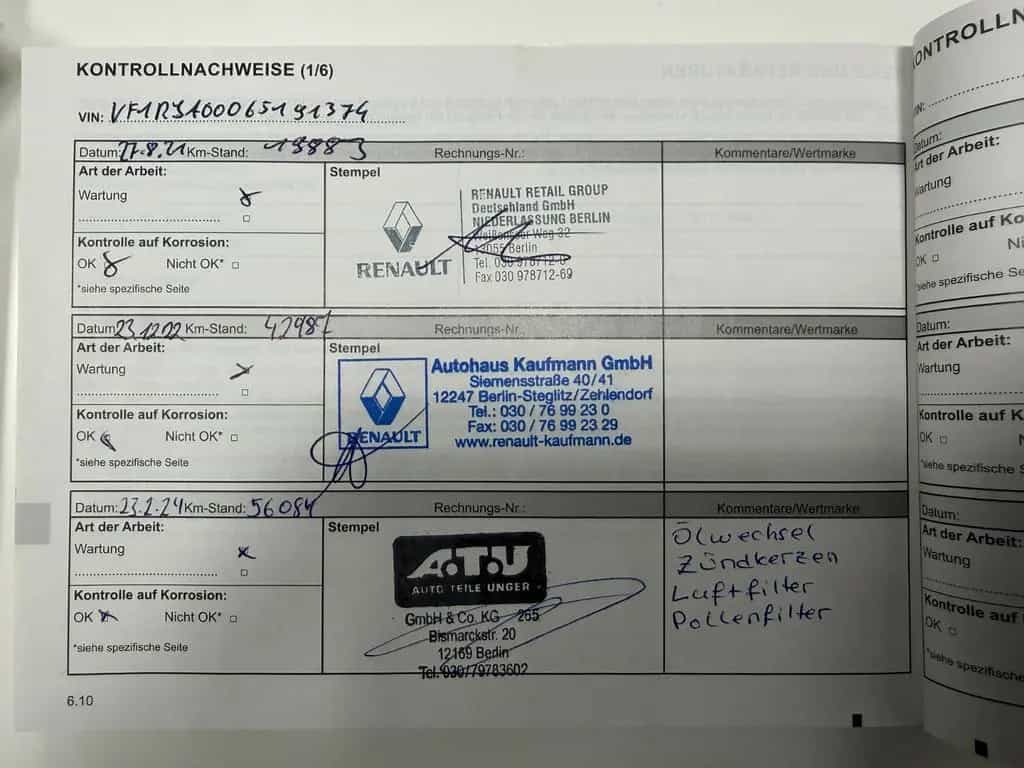 KONTROLLNACHWEISE (1/6)
VIN: VF1RJA00065191374
Datum: 27.8.21 Km-Stand: 19883 Rechnungs-Nr.: Kommentare/Wertmarke
Art der Arbeit: Stempel
Wartung
Kontrolle auf Korrosion:
OK Nicht OK*
*siehe spezifische Seite
RENAULT
RENAULT RETAIL GROUP
Deutschland GmbH
NIEDERLASSUNG BERLIN
Weißenseer Weg 32
13055 Berlin
Tel. 030 978712-0
Fax 030 978712-69
Datum: 23.12.22 Km-Stand: 42987 Rechnungs-Nr.: Kommentare/Wertmarke
Art der Arbeit: Stempel
Wartung
Kontrolle auf Korrosion:
OK Nicht OK*
*siehe spezifische Seite
RENAULT
Autohaus Kaufmann GmbH
Siemensstraße 40/41
12247 Berlin-Steglitz/Zehlendorf
Tel.: 030 / 76 99 23 0
Fax: 030 / 76 99 23 29
www.renault-kaufmann.de
Datum: 23.2.24 Km-Stand: 56084 Rechnungs-Nr.: Kommentare/Wertmarke
Art der Arbeit: Stempel
Wartung
Kontrolle auf Korrosion:
OK Nicht OK*
*siehe spezifische Seite
A.T.U
AUTO TEILE UNGER
GmbH & Co. KG 265
Bismarckstr. 20
12169 Berlin
Tel. 030/79783602
Ölwechsel
Zündkerzen
Luftfilter
Pollenfilter
6.10
Datum:
Art der Arbeit:
Wartung
Kontrolle auf
OK
*siehe spezifische Se
Datum:
Art der Arbeit:
Wartung
Kontrolle auf K
OK
*siehe spezifische S
Datum:
Art der Arbeit:
Wartung
Kontrolle auf
OK
*siehe spezifische